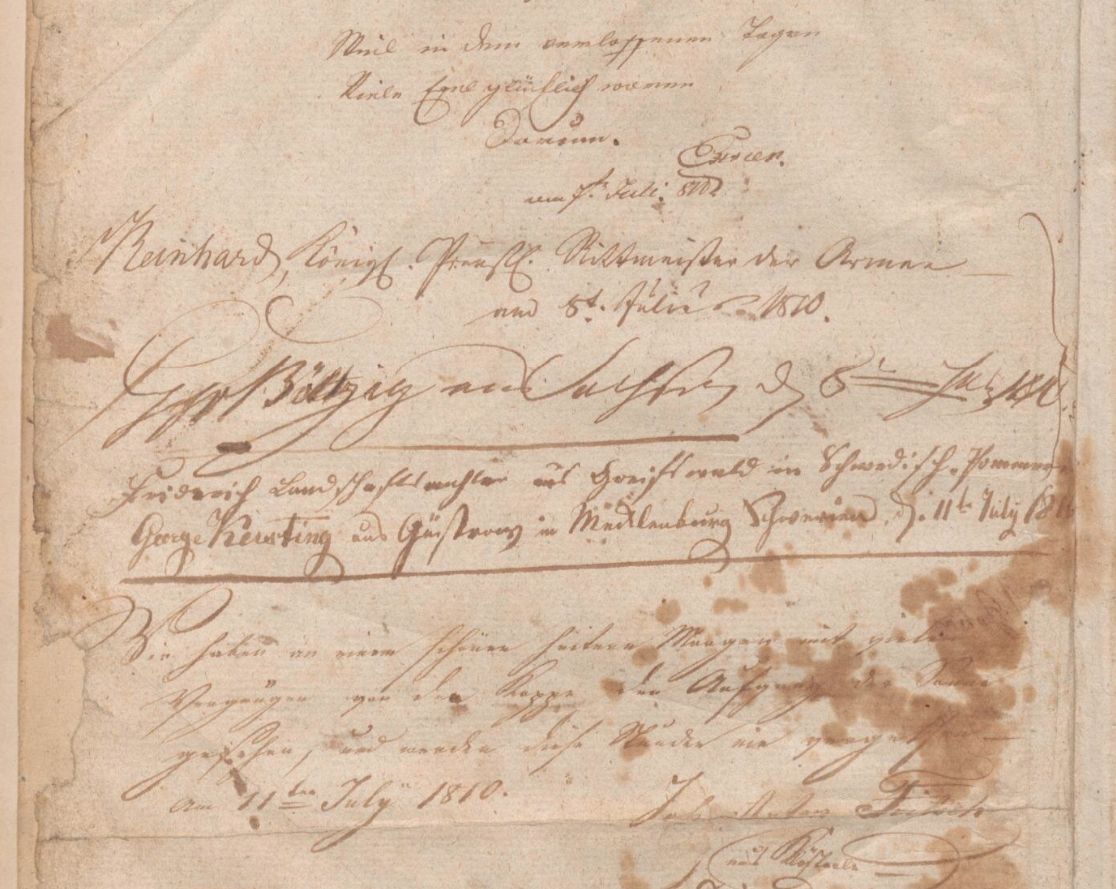 Weil in dem verlossenen Tagen
Viele Esel glücklich waren
Darum.
Exner.
am 7t. Juli. 810.
Reinhard, Königl. Preußl. Rittmeister der Armee
am 8t. Julii 1810.
Böltzig aus Sachsen d 8 July 1810
Friderich Landschaftsmahler aus Greifswald in Schwedisch-Pommern
George Kersting aus Güstrow in Mecklenburg Schwerin, d. 11t July 1810
Wir haben an einem schönen heitern Morgen mit vielem
Vergnügen von der Koppe den Aufgang der Sonne
gesehen, und werden diese Stunde nie vergessen
Am 11ten July 1810.
Joh. Anton
aus